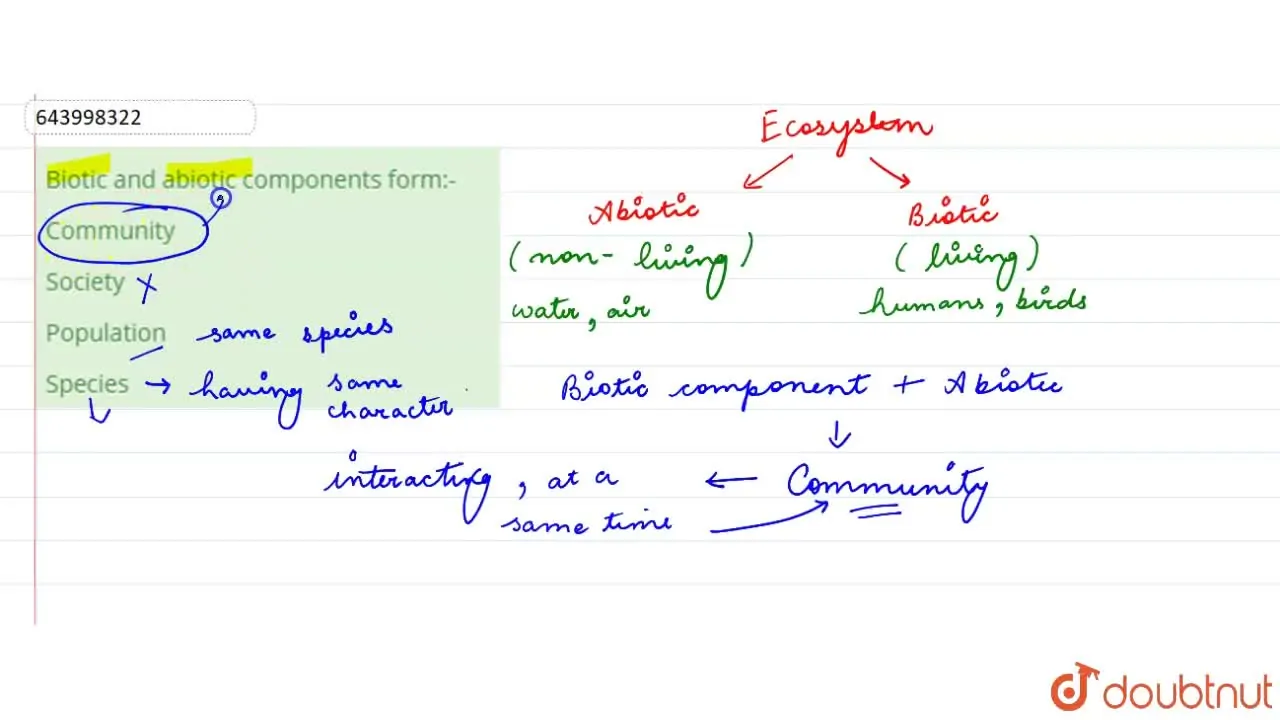 643998322
Biotic and abiotic components form:-
Community
Society ×
Population same species
Species → having same
character
Ecosystem
Abiotic Biotic
(non-living) (living)
water, air humans, birds
Biotic component + Abiotic
↓
interacting, at a ← Community
same time
doubtnut